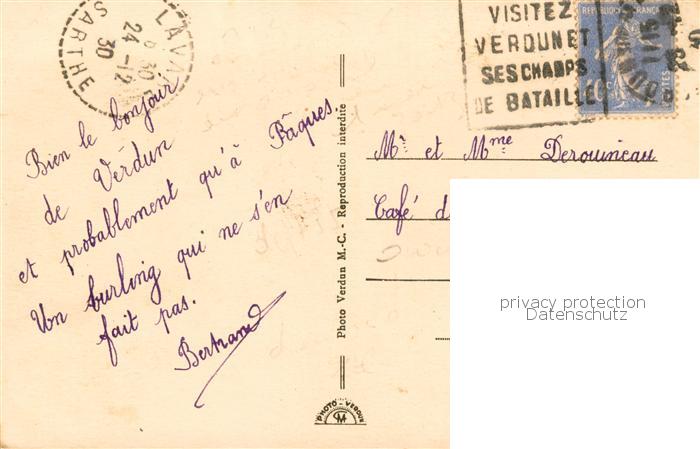 LAVA
24-12
30
SARTHE
VISITEZ
VERDUN ET
SES CHAMPS
DE BATAILLE
Bien le bonjour
de Verdun
et probablement qu'à Pâques.
Un burling qui ne s'en
fait pas.
Bertrand
Photo Verdun M.-C. - Reproduction interdite
PHOTO - VERDUN
Mr et Mme Derouineau
Café d
privacy protection
Datenschutz